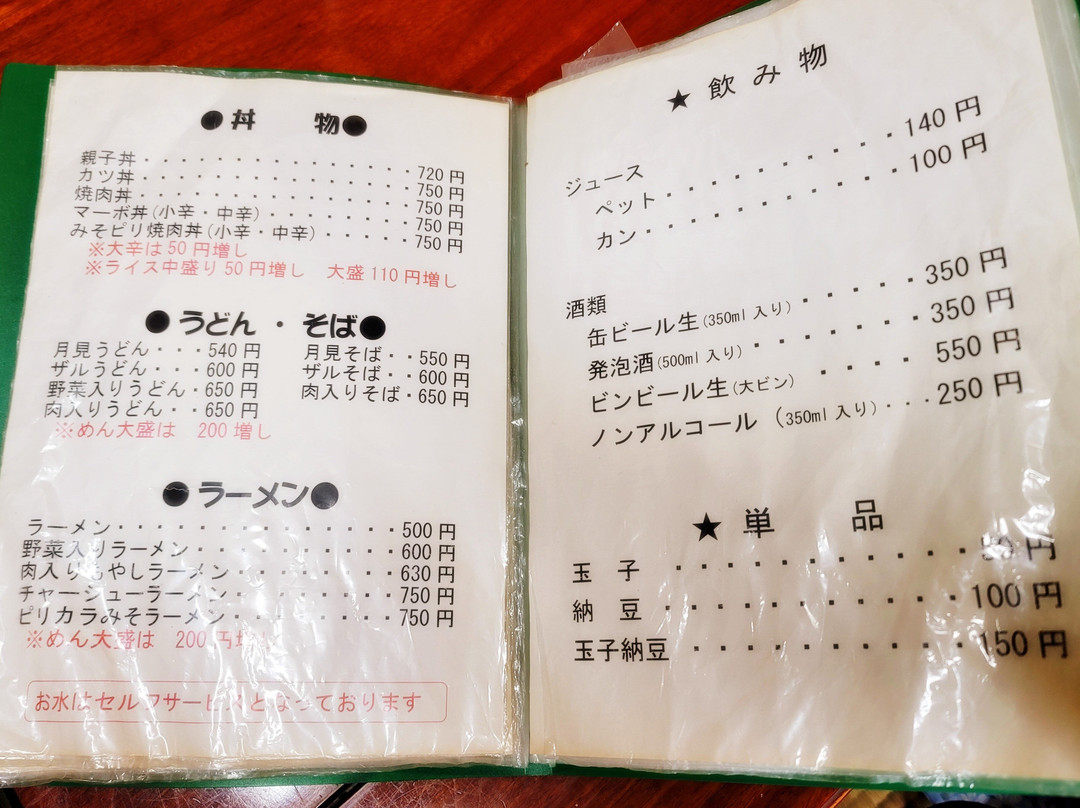 ●丼　物●
親子丼・・・・・・・・・・・・・・720円
カツ丼・・・・・・・・・・・・・・750円
焼肉丼・・・・・・・・・・・・・・750円
マーボ丼(小辛・中辛)・・・・・・・750円
みそピリ焼肉丼(小辛・中辛)・・・・・750円
※大辛は50円増し
※ライス中盛り50円増し　大盛110円増し
●うどん・そば●
月見うどん・・・540円
ザルうどん・・・600円
野菜入りうどん・650円
肉入りうどん・・650円
※めん大盛は　200増し
月見そば・・550円
ザルそば・・600円
肉入りそば・650円
●ラーメン●
ラーメン・・・・・・・・・・・・・・500円
野菜入りラーメン・・・・・・・・・・600円
肉入りもやしラーメン・・・・・・・・630円
チャーシューラーメン・・・・・・・・750円
ピリカラみそラーメン・・・・・・・・750円
※めん大盛は　200円増
お水はセルフサービスとなっております
★飲み物
ジュース
ペット・・・・・・・・・・140円
カン・・・・・・・・・・100円
酒類
缶ビール生(350ml入り)・・・・・350円
発泡酒(500ml入り)・・・・・・・350円
ビンビール生(大ビン)・・・・550円
ノンアルコール(350ml入り)・・・250円
★単　品
玉　子・・・・・・・・・・・・円
納　豆・・・・・・・・・・・・100円
玉子納豆・・・・・・・・・・・150円